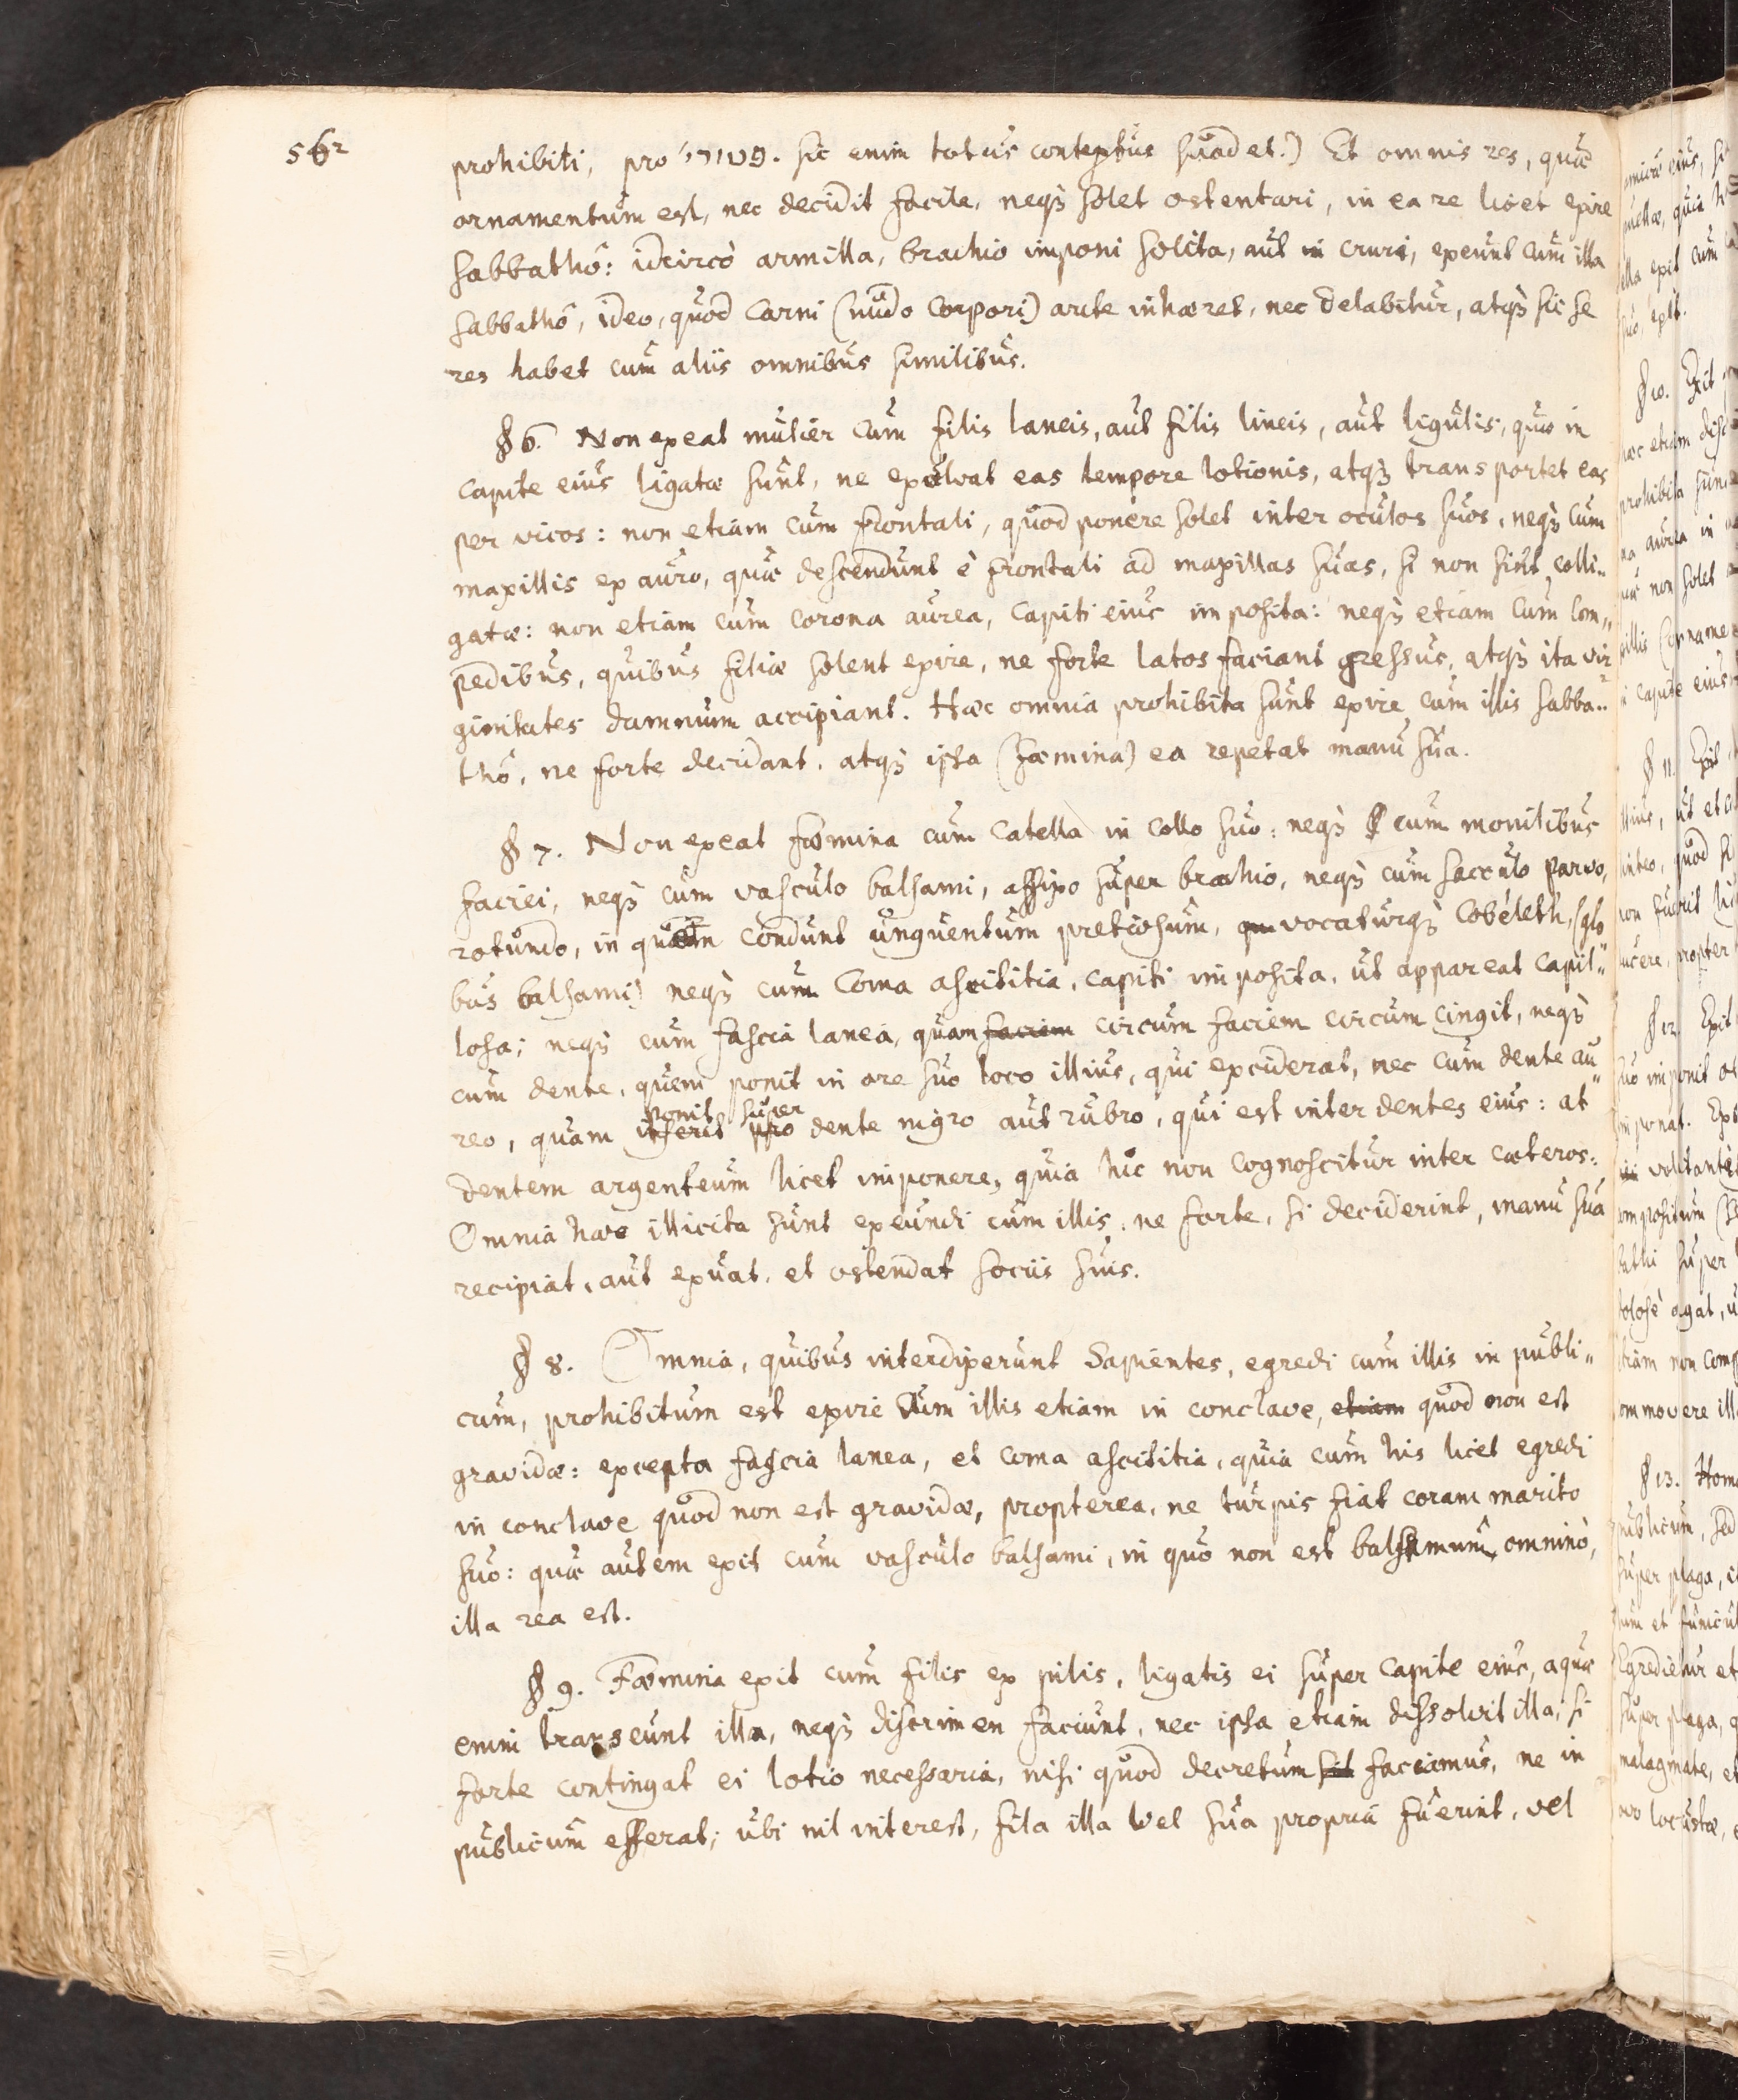 562
prohibiti, pro פטורי. sic enim totus contextus suadet.) Et omnis res, quæ
ornamentum est, nec decidit facile, neqꝫ solet ostentari, in ea re licet exire
sabbathô: idcircò armilla, brachio imponi solita, aut in cruri, exeunt cum illa
sabbathô, ideo, quod carni (nudo corpori) arcte inhæret, nec delabitur, atqꝫ sic se
res habet cum aliis omnibus similibus.
§ 6. Non exeat mulier cum filis laneis, aut filis lineis, aut ligulis, quæ in
capite eius ligatæ sunt, ne exolvat eas tempore lotionis, atqꝫ transportet eas
per vicos: non etiam cum frontali, quod ponere solet inter oculos suos, neqꝫ cum
maxillis ex auro, quæ descendunt è frontali ad maxillas suas, si non sint colli„
gatæ: non etiam cum corona aurea, capiti eius imposita: neqꝫ etiam cum com„
pedibus, quibus filiæ solent exire, ne forte latos faciant gressus, atqꝫ ita vir
ginitates damnum accipiant. Hæc omnia prohibita sunt exire cum illis sabba„
thô, ne forte decidant, atqꝫ ipsa (fæmina) ea repetat manu sua.
§ 7. Non exeat fæmina cum catella in collo suo: neqꝫ cum monilibus
faciei, neqꝫ cum vasculo balsami, affixo super brachio, neqꝫ cum sacculo parvo,
rotundo, in quem condunt unguentum pretiosum, vocaturqꝫ Cobéleth, (glo
bus balsami) neqꝫ cum coma ascititia, capiti imposita, ut appareat capil„
losa; neqꝫ cum fascia lanea, quam faciem circum faciem circum cingit, neqꝫ
cum dente, quem ponit in ore suo loco illius, qui exciderat, nec cum dente au„
reo, quam inserit pro ponit super dente nigro aut rubro, qui est inter dentes eius: at
dentem argenteum licet imponere, quia hic non cognoscitur inter cæteros:
Omnia hæc illicita sunt exeundi cum illis, ne forte, si deciderint, manu sua
recipiat, aut exuat, et ostendat sociis suis.
§ 8. Omnia, quibus interdixerunt Sapientes, egredi cum illis in publi„
cum, prohibitum est exire cum illis etiam in conclave, etiam quod non est
gravidæ: excepta fascia lanea, et coma ascititia, quia cum his licet egredi
in conclave quod non est gravidæ, propterea, ne turpis fiat coram marito
suo: quæ autem exit cum vasculo balsami, in quo non est balsamum omninò,
illa rea est.
§ 9. Fæmina exit cum filis ex pilis, ligatis ei super capite eius, aquæ
enim transeunt illa, neqꝫ discrimen faciunt, nec ipsa etiam dissolvit illa, si
forte contingat ei lotio necessaria, nisi quod decretum sit faciamus, ne in
publicum efferat; ubi nil interest, fila illa vel sua propria fuerint, vel